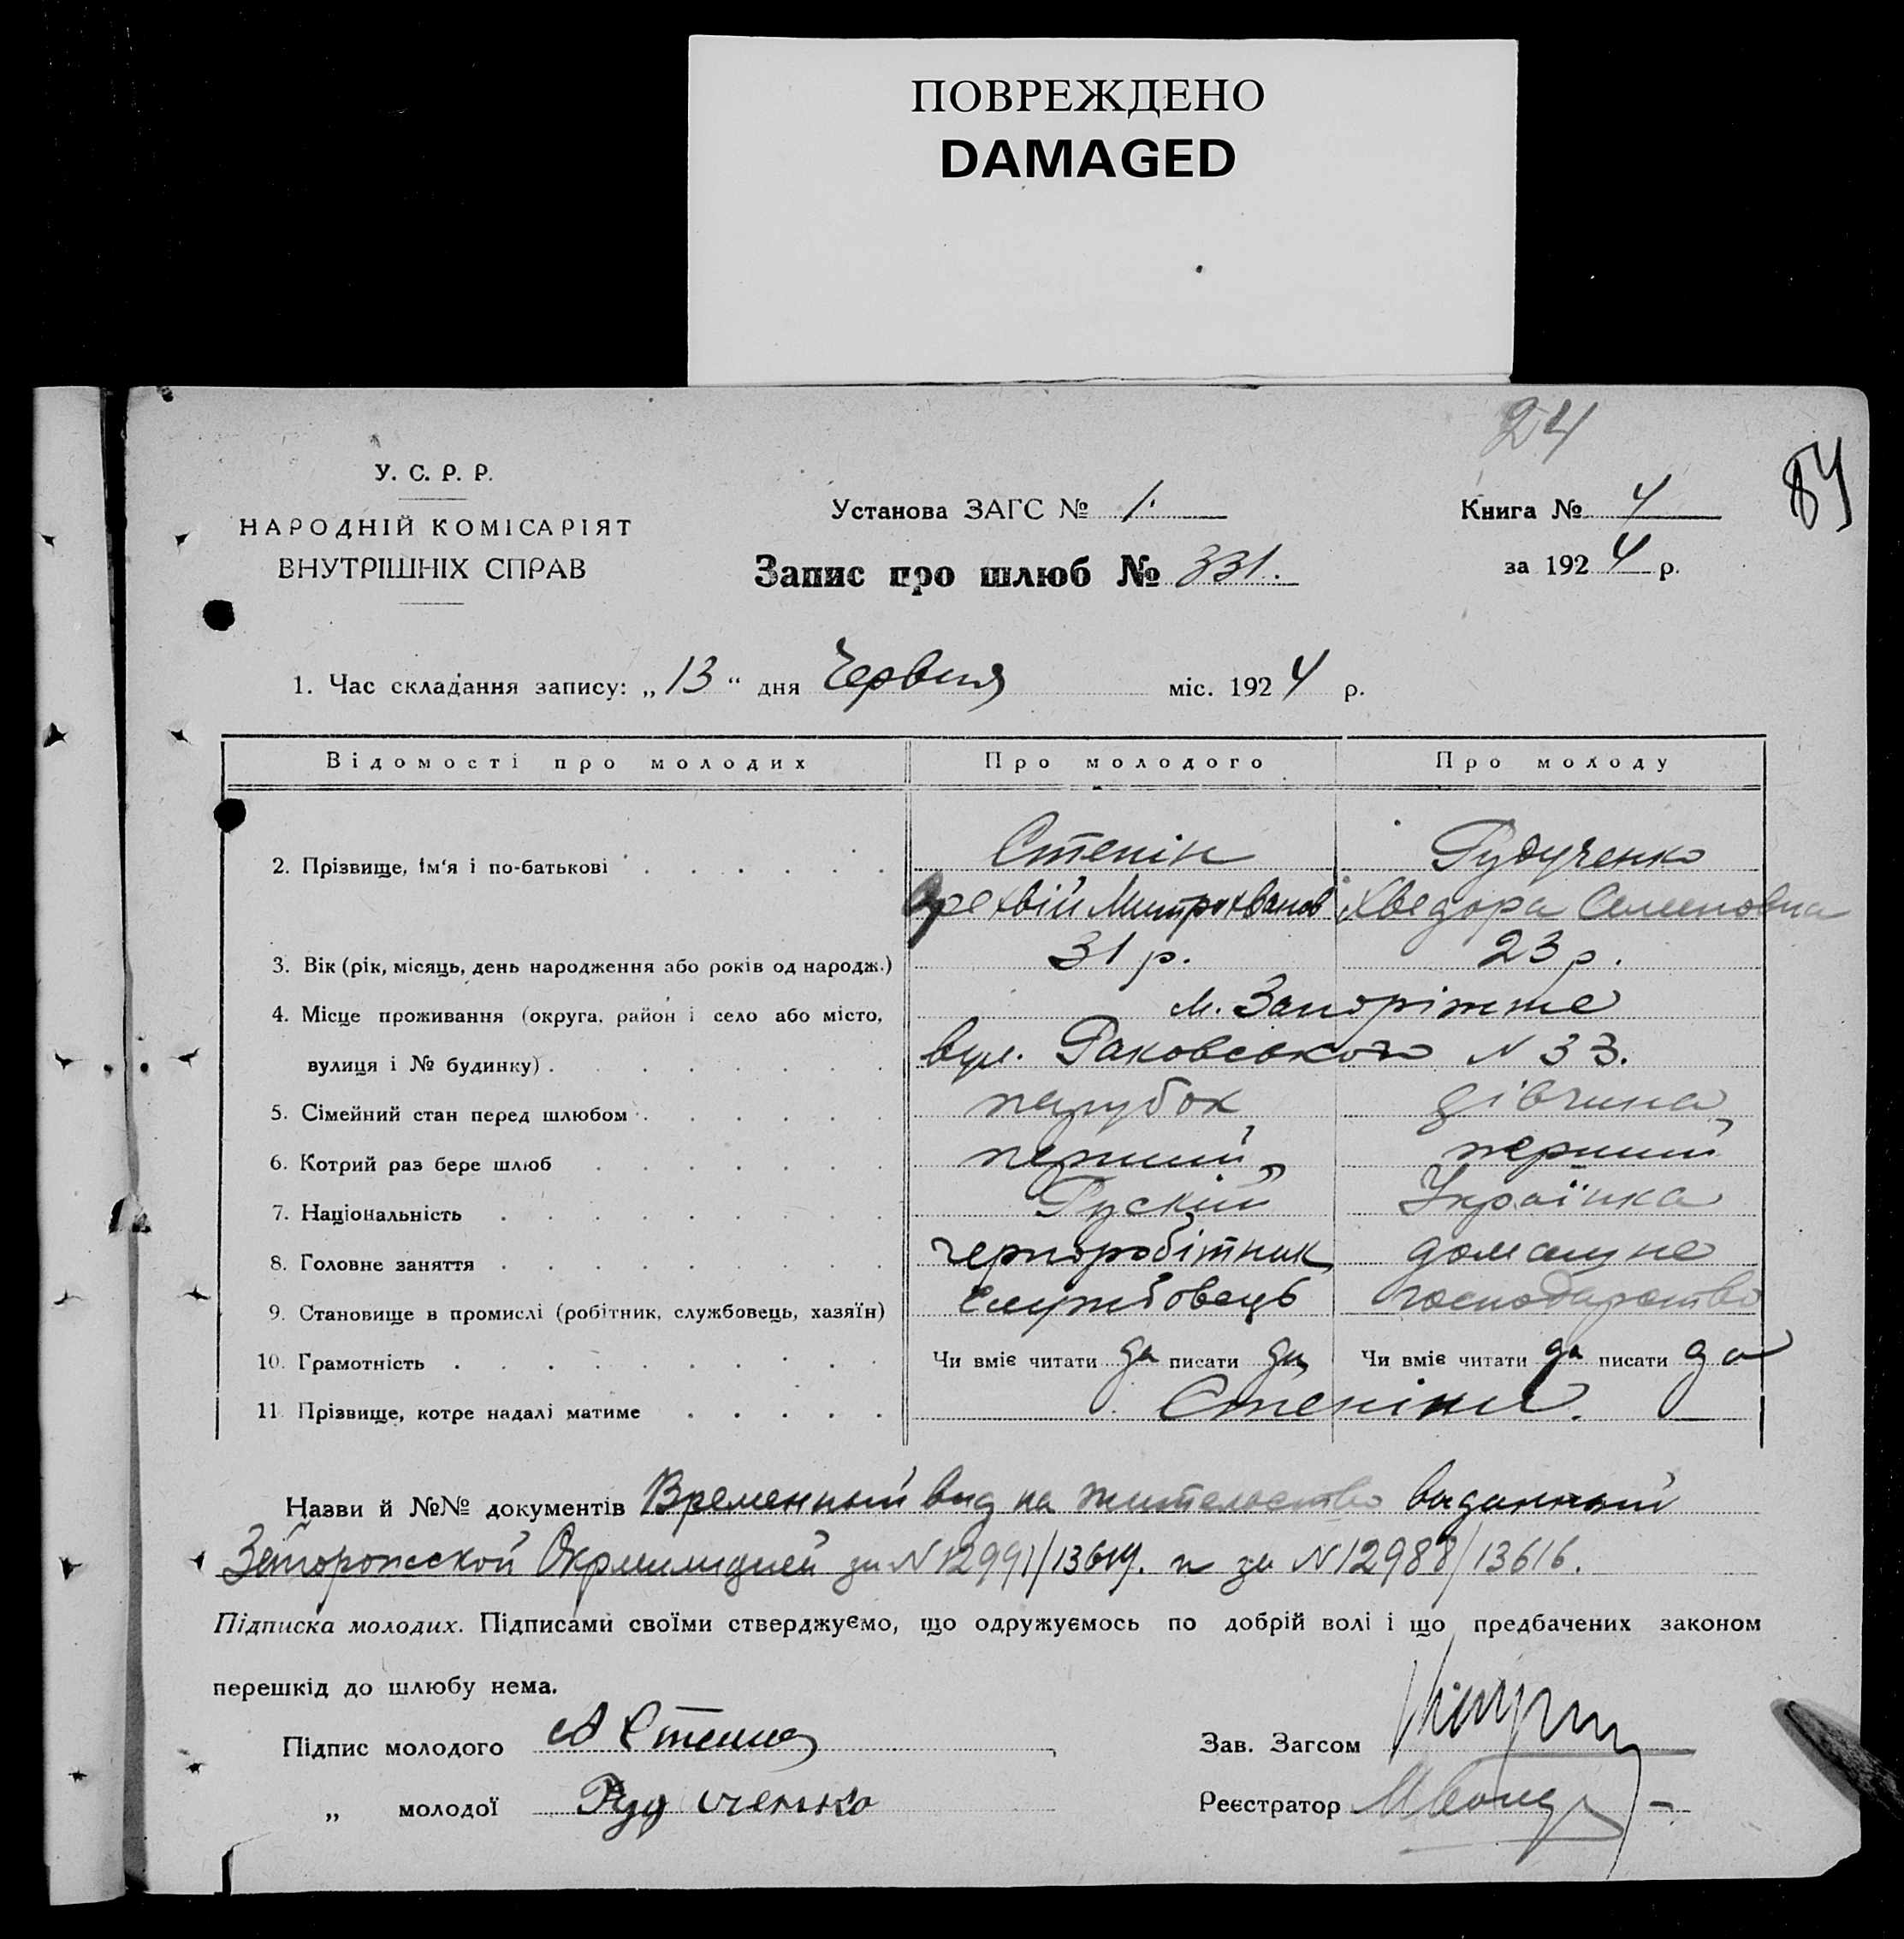 ПОВРЕЖДЕНО
DAMAGED
24
84
У. С. Р. Р.
НАРОДНІЙ КОМІСАРІЯТ
ВНУТРІШНІХ СПРАВ
Установа ЗАГС № 1.
Запис про шлюб № 331.
Книга № 4
за 1924 р.
1. Час складання запису: „13“ дня Червня міс. 1924 р.
Відомості про молодих Про молодого Про молоду
2. Прізвище, ім'я і по-батькові Степін Рудученко
Митрохванов Хведора Семеновна
3. Вік (рік, місяць, день народження або років од народж.) 31 р. 23 р.
4. Місце проживання (округа, район і село або місто, м. Запоріжже
вулиця і № будинку) вул. Раковського N 33.
5. Сімейний стан перед шлюбом парубок дівчина
6. Котрий раз бере шлюб перший перший
7. Національність Рускій Українка
8. Головне заняття чорноробітник домашнє
9. Становище в промислі (робітник, службовець, хазяїн) Службовець господарство
10. Грамотність Чи вміє читати да писати да Чи вміє читати да писати да
11. Прізвище, котре надалі матиме Степіни.
Назви й №№ документів Временный вид на жительство выданный
Запорожской Окрмилицией за N 12991/13619. и за N 12988/13616.
Підписка молодих. Підписами своїми стверджуємо, що одружуємось по добрій волі і що предбачених законом
перешкід до шлюбу нема.
Підпис молодого А Степин
Зав. Загсом
„ молодої Рудученко
Реєстратор